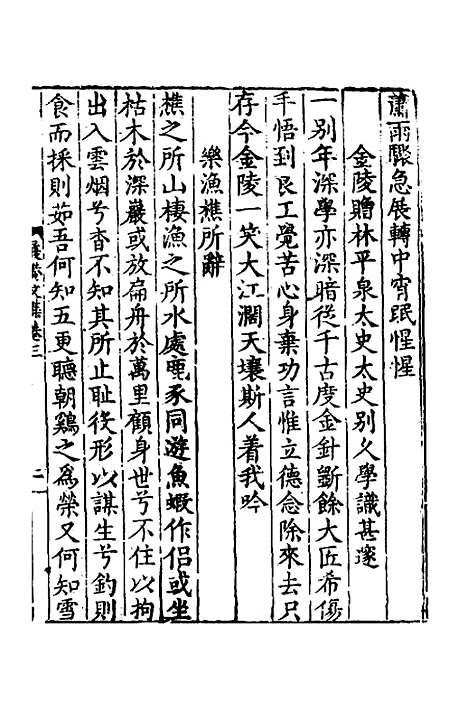 蕭雨驟急展轉中宵眠惺惺
金陵贈林平泉太史太史別久學識甚邃
一別年深學亦深暗從千古度金針斵餘大匠希傷
手悟到良工覺苦心身棄功言惟立德念除來去只
存今金陵一笑大江濶天壤斯人着我吟
樂漁樵所辭
樵之所山棲漁之所水處麀豕同遊魚蝦作侶或坐
枯木於深巖或放扁舟於萬里顧身世兮不住以拘
出入雲烟兮杳不知其所止耻役形以謀生兮釣則
食而採則茹吾何知五更聽朝鷄之為榮又何知雪
文集卷三
二